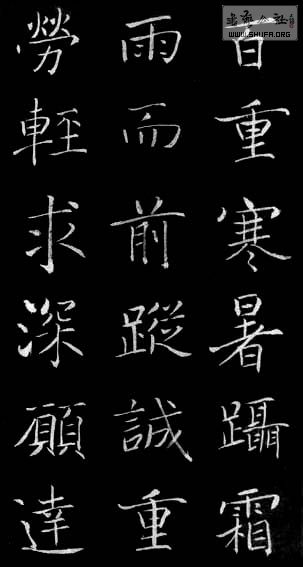 百重寒暑躡霜
雨而前蹤誠重
勞輕求深願達
WWW.SHUFA.ORG